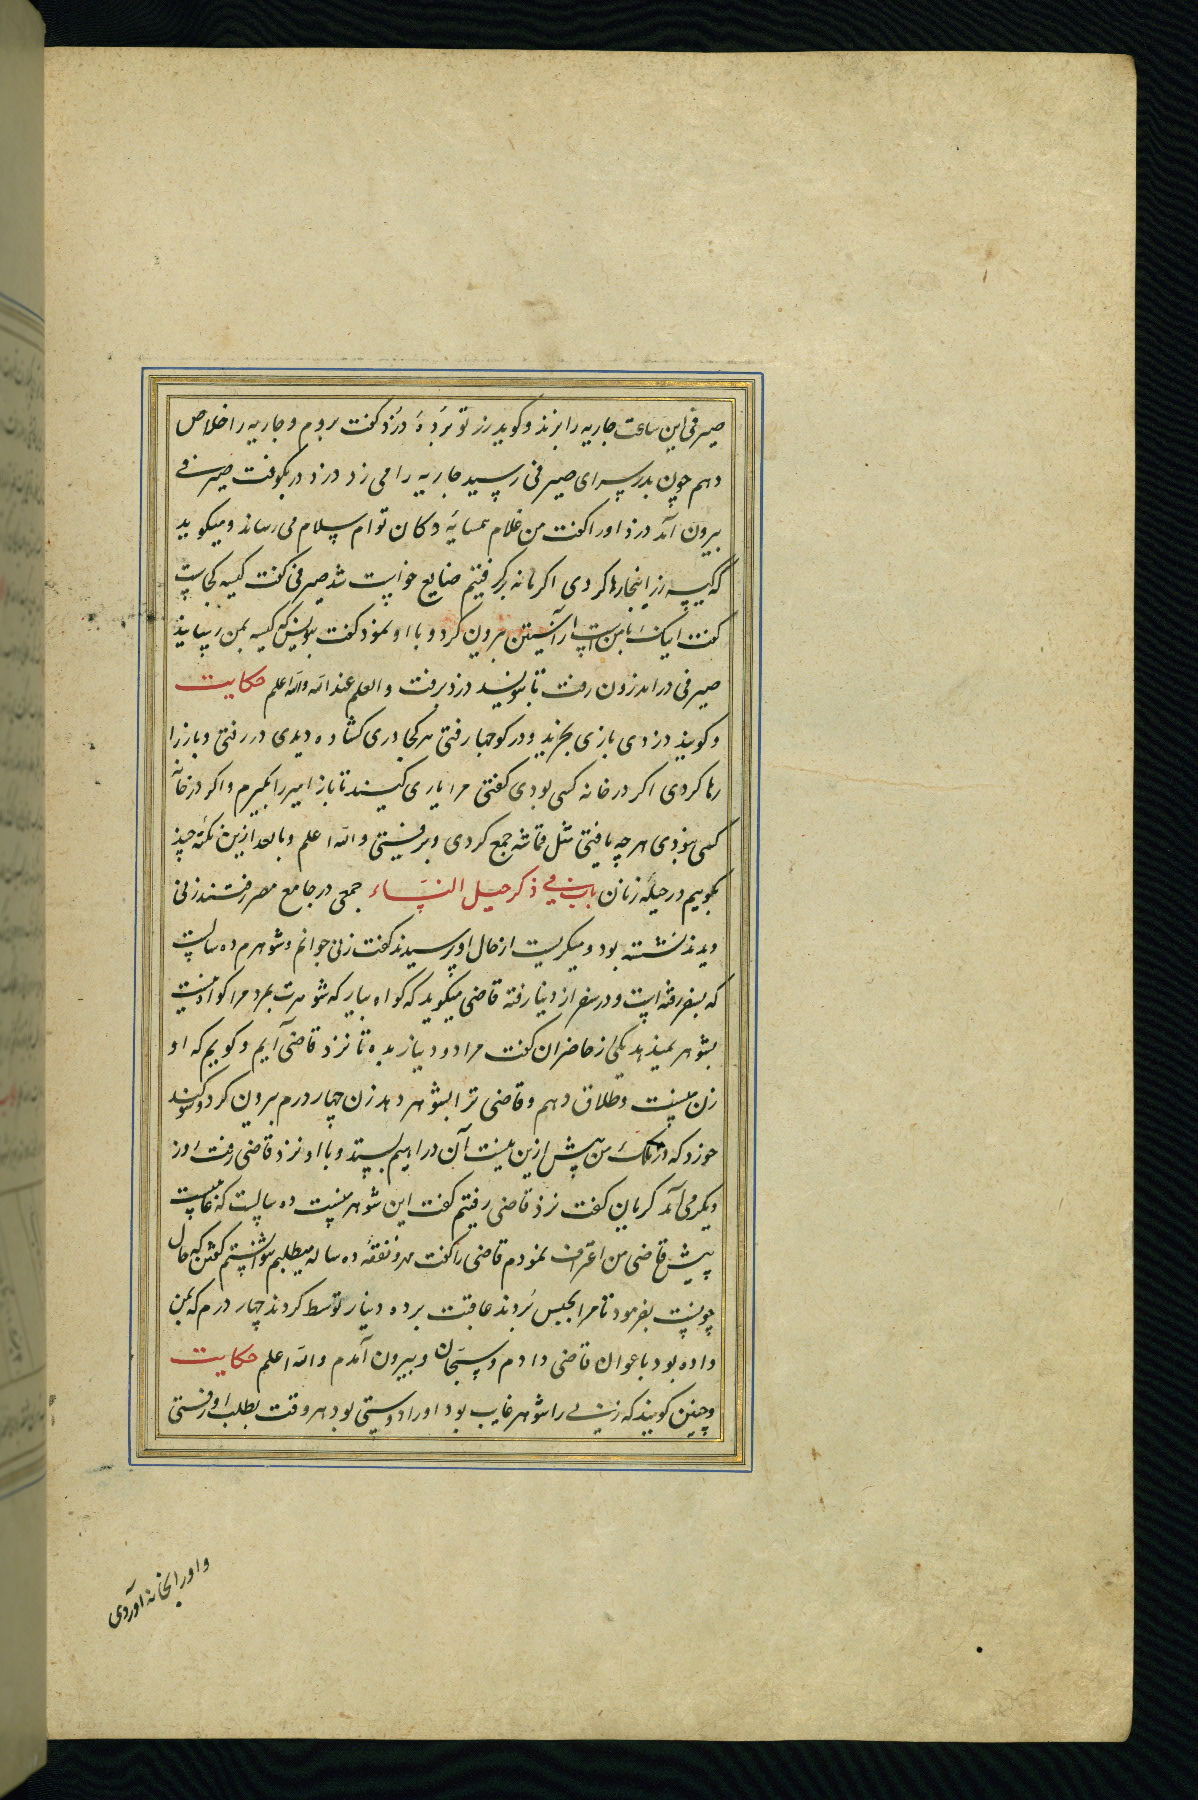 صیرفی این ساعت جاریه را بزند و کوید زر تو برده دزد کفت بروم و جاریه را خلاص
دهم چون بدر سرای صیرفی رسید جاریه را می زد دزد در بکوفت صیرفی
بیرون آمد دزد اورا کفت من غلام همسایهٔ دکان توام سلام می رساند و میکوید
که کیسه زر اینجا رها کردی اکر ما نه برکرفتیم ضایع خواست شد صیرفی کفت کیسه کجاست
کفت اینک با من است از آستین بیرون کرد و با او نمود کفت بنویس که کیسه بمن رسانید
صیرفی در اندرون رفت تا بنویسد دزد برفت والعلم عند الله والله اعلم حکایت
و کویند دزدی بازی بخرید و در کوچها رفتی هر کجا دری کشاده دیدی در رفتی و باز را
رها کردی اکر در خانه کسی بودی کفتی مرا یاری کنید تا باز امیر را بکیرم و اکر در خانه
کسی نبودی هر چه یافتی مثل قماشه جمع کردی و برفتی والله اعلم و ما بعد ازین نکتهٔ چند
بکوییم در حیلهٔ زنان باب فی ذکر حیل النساء جمعی در جامع مصر رفتند زنی
دیدند نشسته بود و میکریست از حال او پرسیدند کفت زنی جوانم و شوهرم ده سالست
که بسفر رفته است و در سفر از دنیا رفته قاضی میکوید که کواه بیار که شوهرت بمرد مرا کواه نیست
بشوهر نمیدهد یکی از حاضران کفت مرا دو دینار بده تا نزد قاضی آیم و کویم که او
زن منست و طلاق دهم و قاضی ترا بشوهر دهد زن چهار درم بیرون کرد و سوکند
خورد که در ملک من پیش ازین نیست آن دراهم بستد و با او نزد قاضی رفت روز
دیکر می آمد کریان کفت نزد قاضی رفتیم کفت این شوهر منست ده سالست که غایبست
پیش قاضی من اعتراف نمودم قاضی را کفت مهر و نفقهٔ ده ساله میطلبم نتوانستم کفتن که حال
چونست بفرمود تا مرا بحبس بردند عاقبت بر ده دینار توسط کردند چهار درم که بمن
داده بود باعوان قاضی دادم و سجان و بیرون آمدم والله اعلم حکایت
و چنین کویند که زنی را شوهر غایب بود اورا دوستی بود هر وقت بطلب او رفتی
و اورا بخانه آوردی